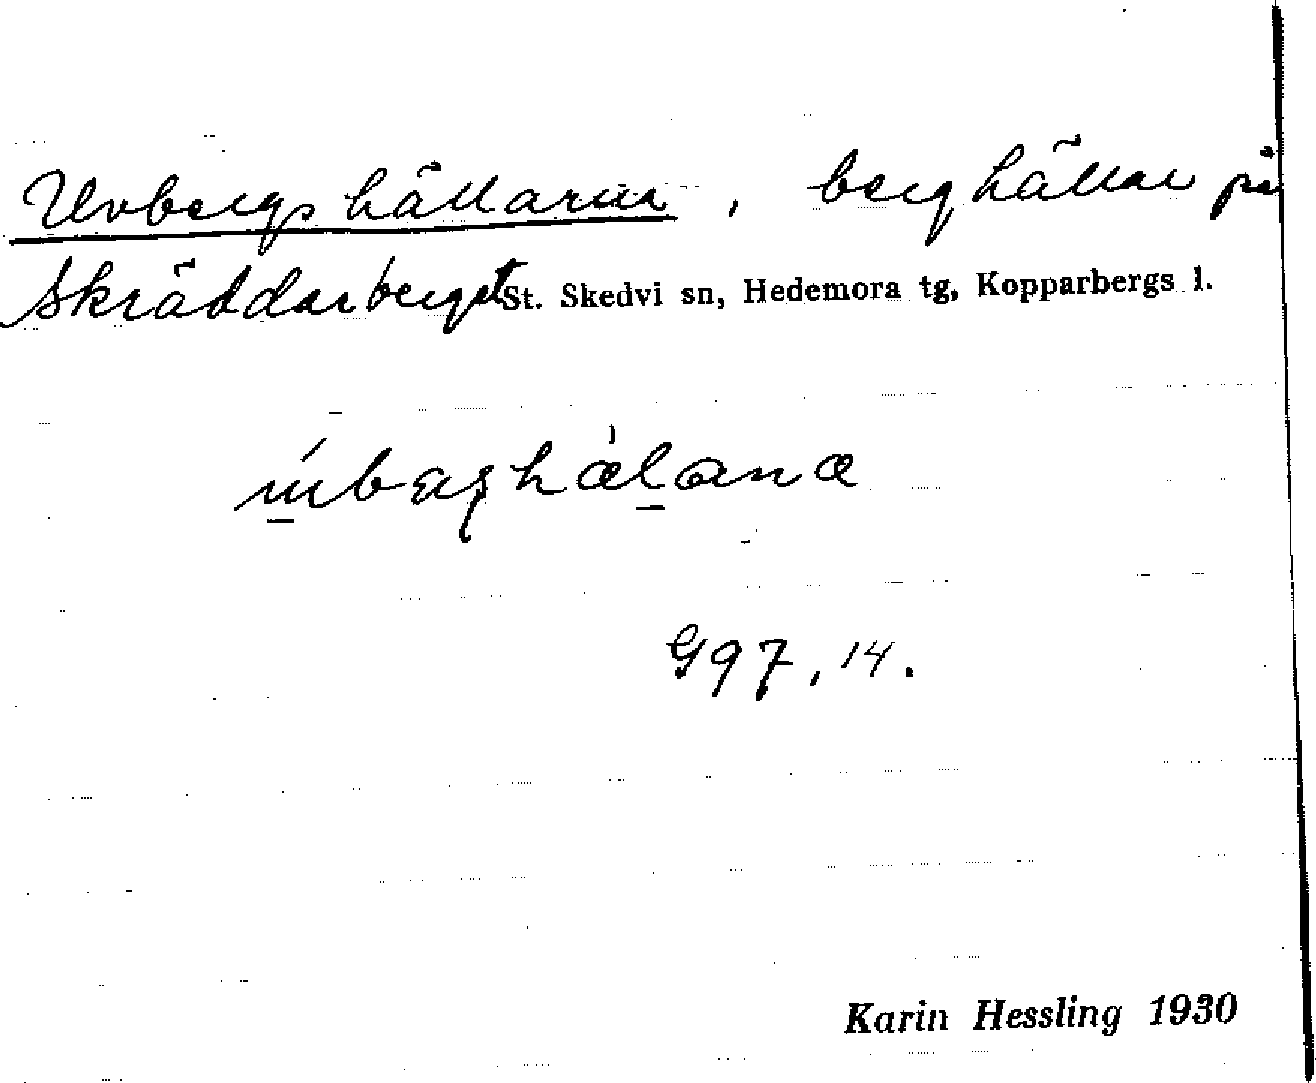 Uvbergshällarna, berghällar på
Skräddarberget St. Skedvi sn, Hedemora tg, Kopparbergs l.
G 97, 14.
Karin Hessling 1930